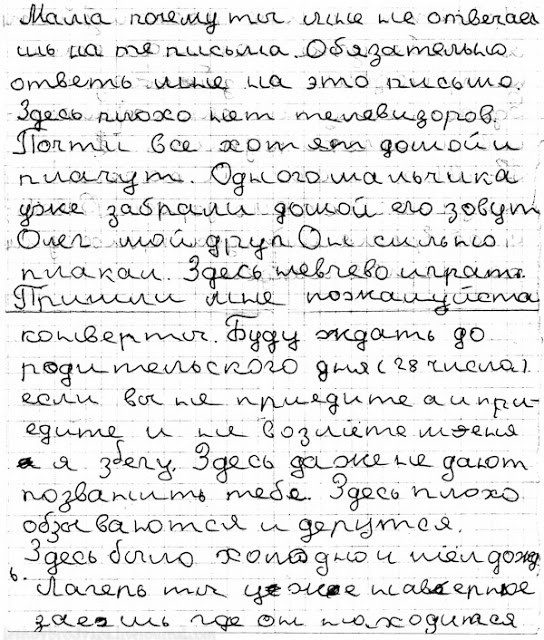 Мама почему ты мне не отвечае
шь на те письма. Обязательно
ответь мне на это письмо.
Здесь плохо нет телевизоров.
Почти все хотят домой и
плачут. Одного мальчика
уже забрали домой его зовут
Олег мой друг Он сильно
плакал. Здесь невчево играть.
Пришли мне пожалуйста
конверты. Буду ждать до
родительского дня (28 числа)
если вы не приедите а и при-
едите и не возмете меня
я збегу. Здесь даже не дают
позванить тебе. Здесь плохо
обзываются и дерутся.
Здесь было холодно и шел дожд
ь. Лагерь ты уже наверное
знаешь где он находится